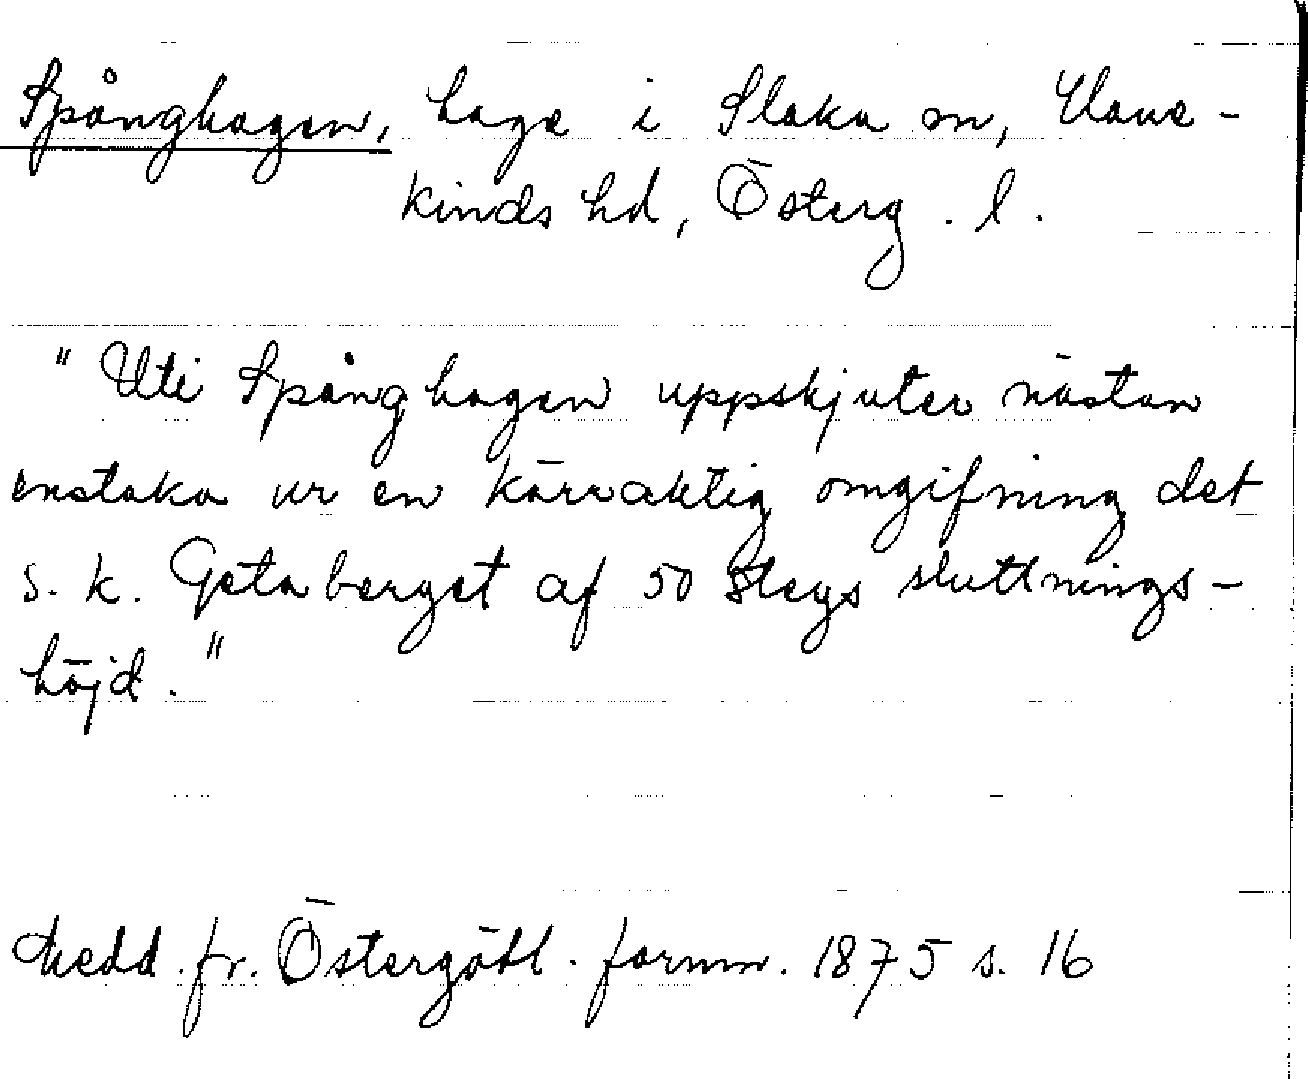 Spånghagen, hage i Slaka sn, Hane-
kinds hd, Österg. l.
"Uti Spånghagen uppskjuter nästan
enstaka ur en kärraktig omgifning det
s. k. Getaberget af 50 stegs sluttnings-
höjd."
Medd. fr. Östergötl. fornm. 1875 s. 16